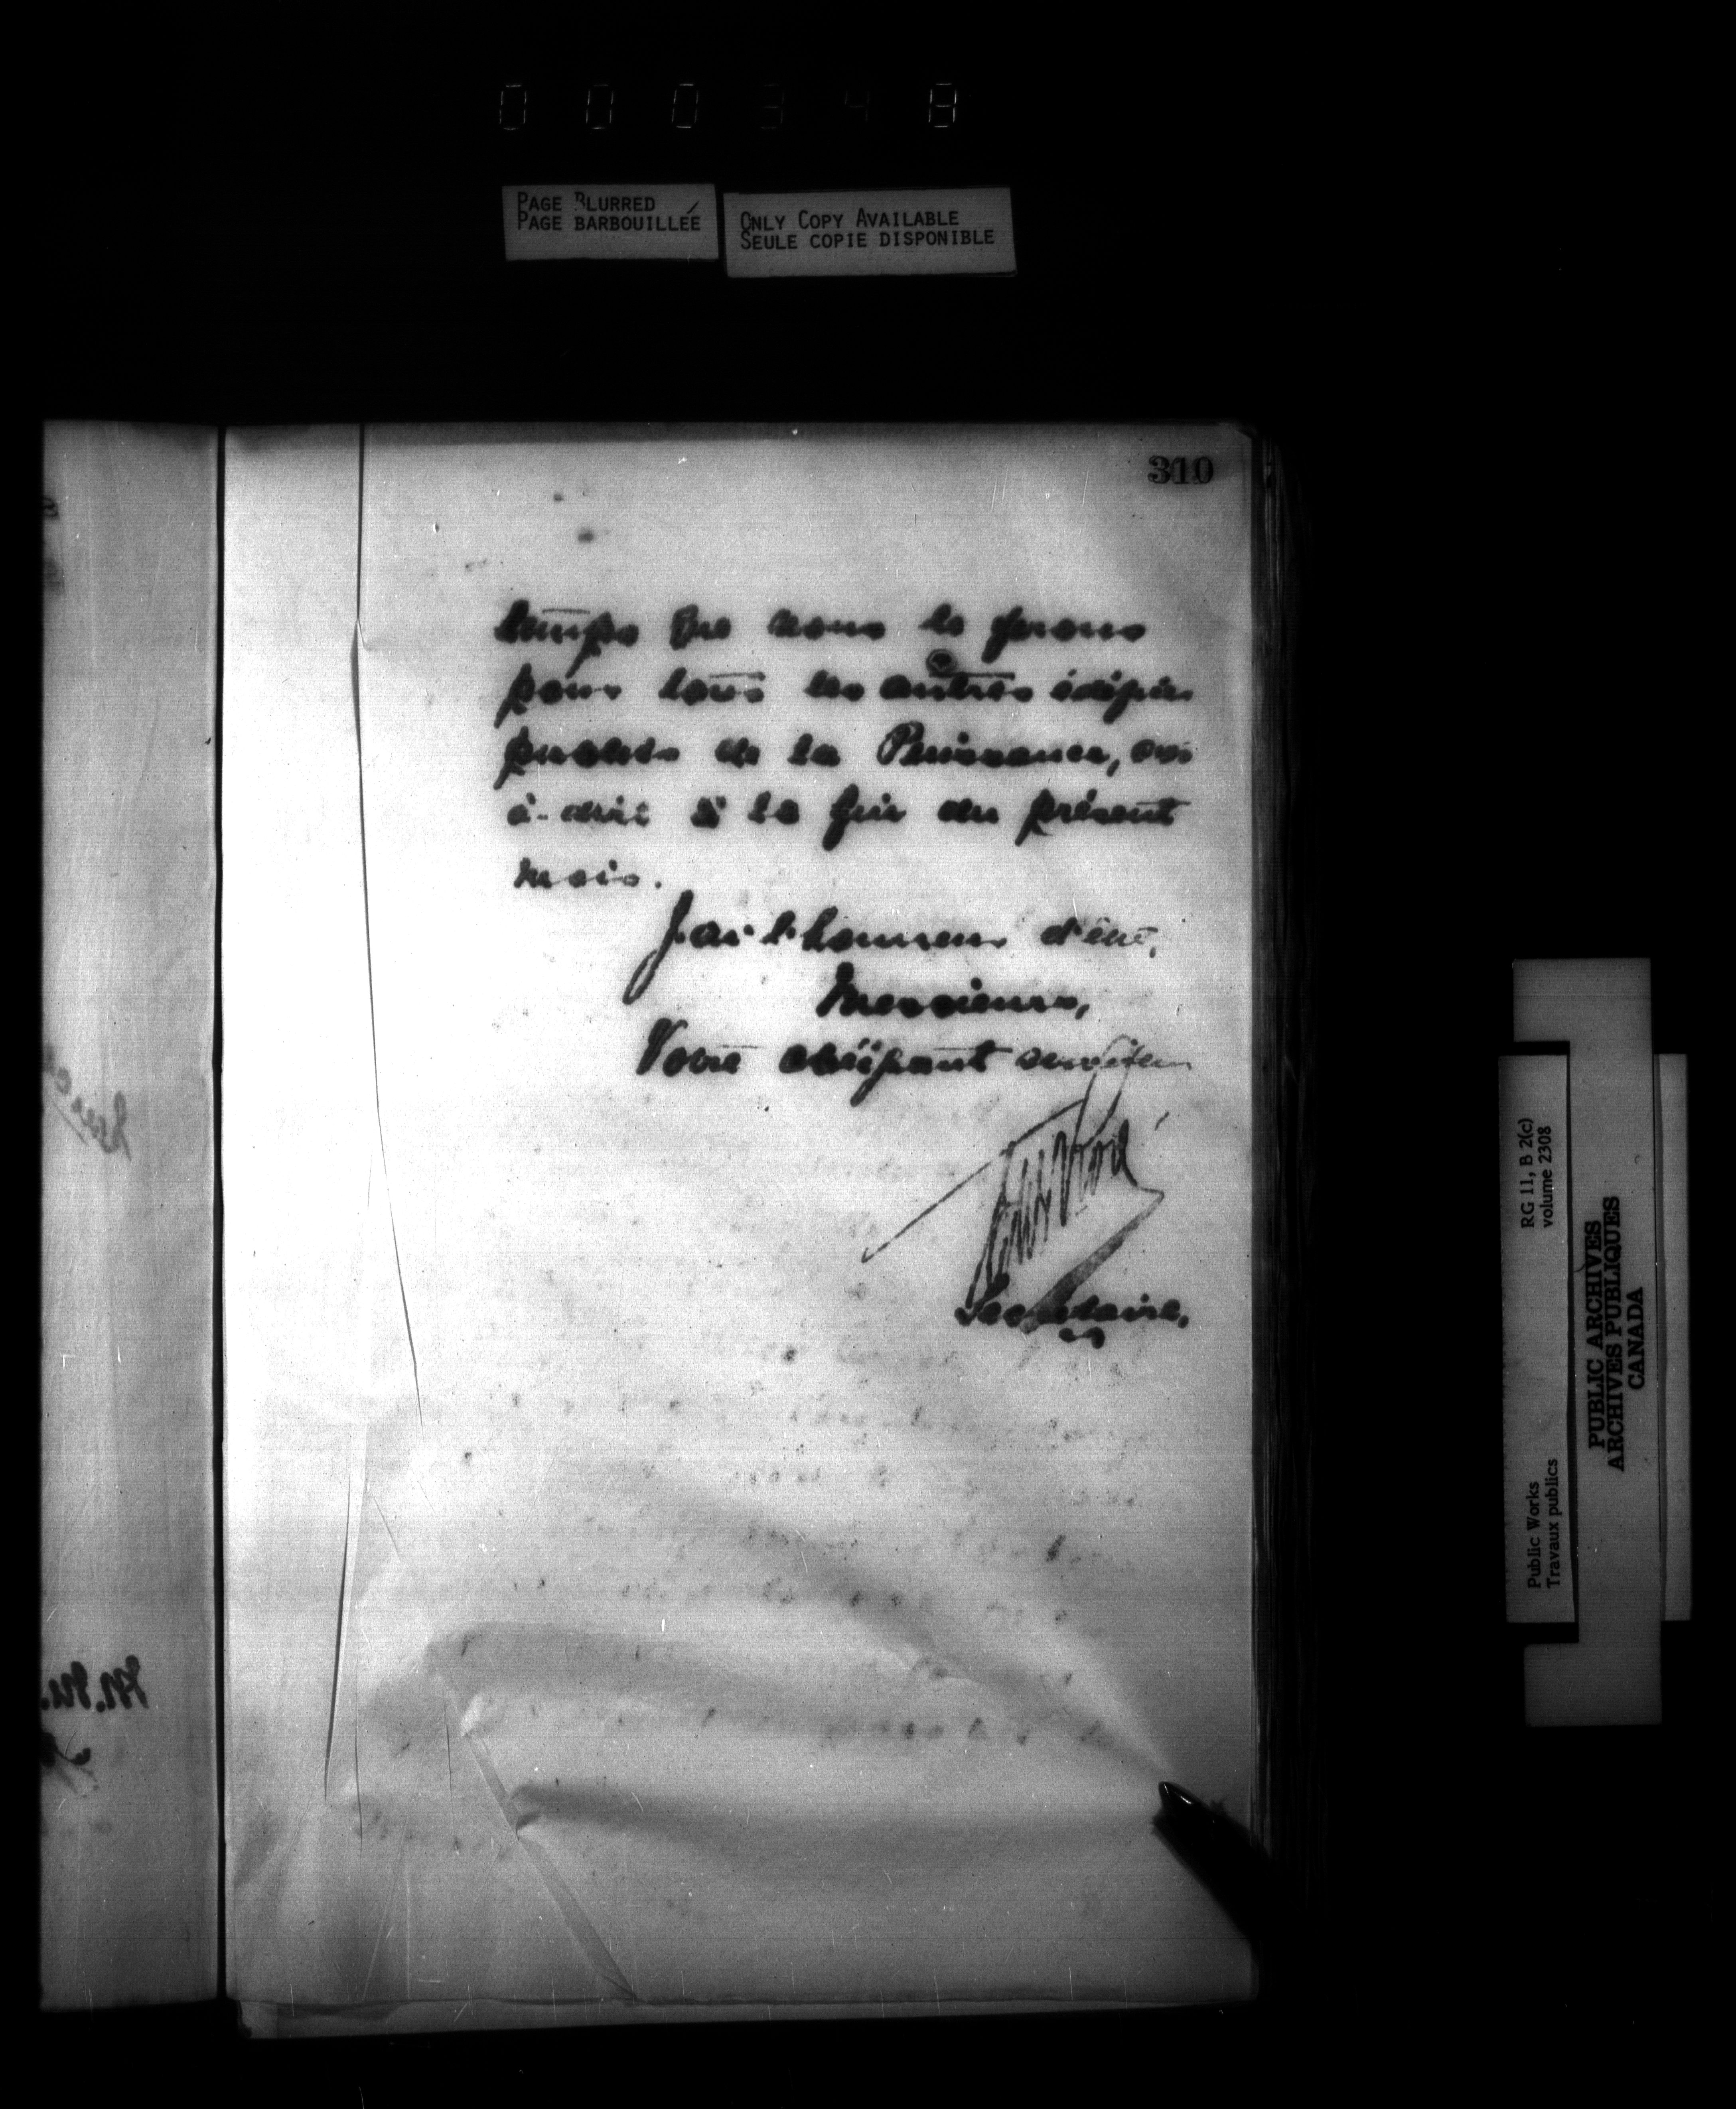 000348
PAGE BLURRED
PAGE BARBOUILLÉE
ONLY COPY AVAILABLE
SEULE COPIE DISPONIBLE
310
temps que nous le ferons
pour tous les autres édifices
publics de la Puissance, c'est
à-dire à la fin du présent
mois.
J'ai l'honneur d'être,
Messieurs,
Votre obéissant serviteur
Secrétaire,
RG 11, B 2(c)
volume 2308
Public Works
Travaux publics
PUBLIC ARCHIVES
ARCHIVES PUBLIQUES
CANADA